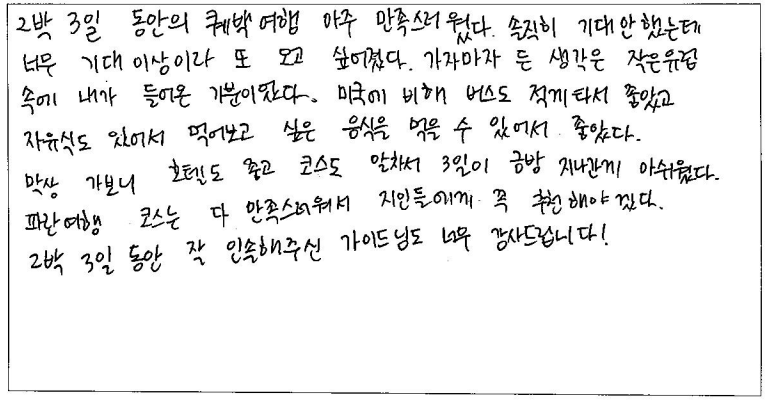 2박 3일 동안의 퀘백여행 아주 만족스러웠다. 솔직히 기대안했는데
너무 기대이상이라 또 오고 싶어졌다. 가자마자 든 생각은 작은유럽
속에 내가 들어온 기분이었다. 미국에 비해 버스도 적게타서 좋았고
자유식도 있어서 먹어보고 싶은 음식을 먹을 수 있어서 좋았다.
막상 가보니 호텔도 좋고 코스도 알차서 3일이 금방 지나간게 아쉬웠다.
파란여행 코스는 다 만족스러워서 지인들에게 꼭 추천해야겠다.
2박 3일 동안 잘 인솔해주신 가이드님도 너무 감사드립니다!